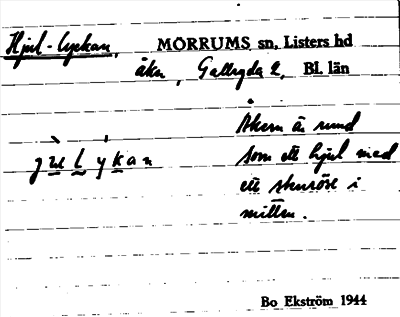 Hjul-lyckan, MÖRRUMS sn, Listers hd
åker, Gallryda 2, Bl. län
Åkern är rund
jʉlykan som ett hjul med
ett stenröse i
mitten.
Bo Ekström 1944